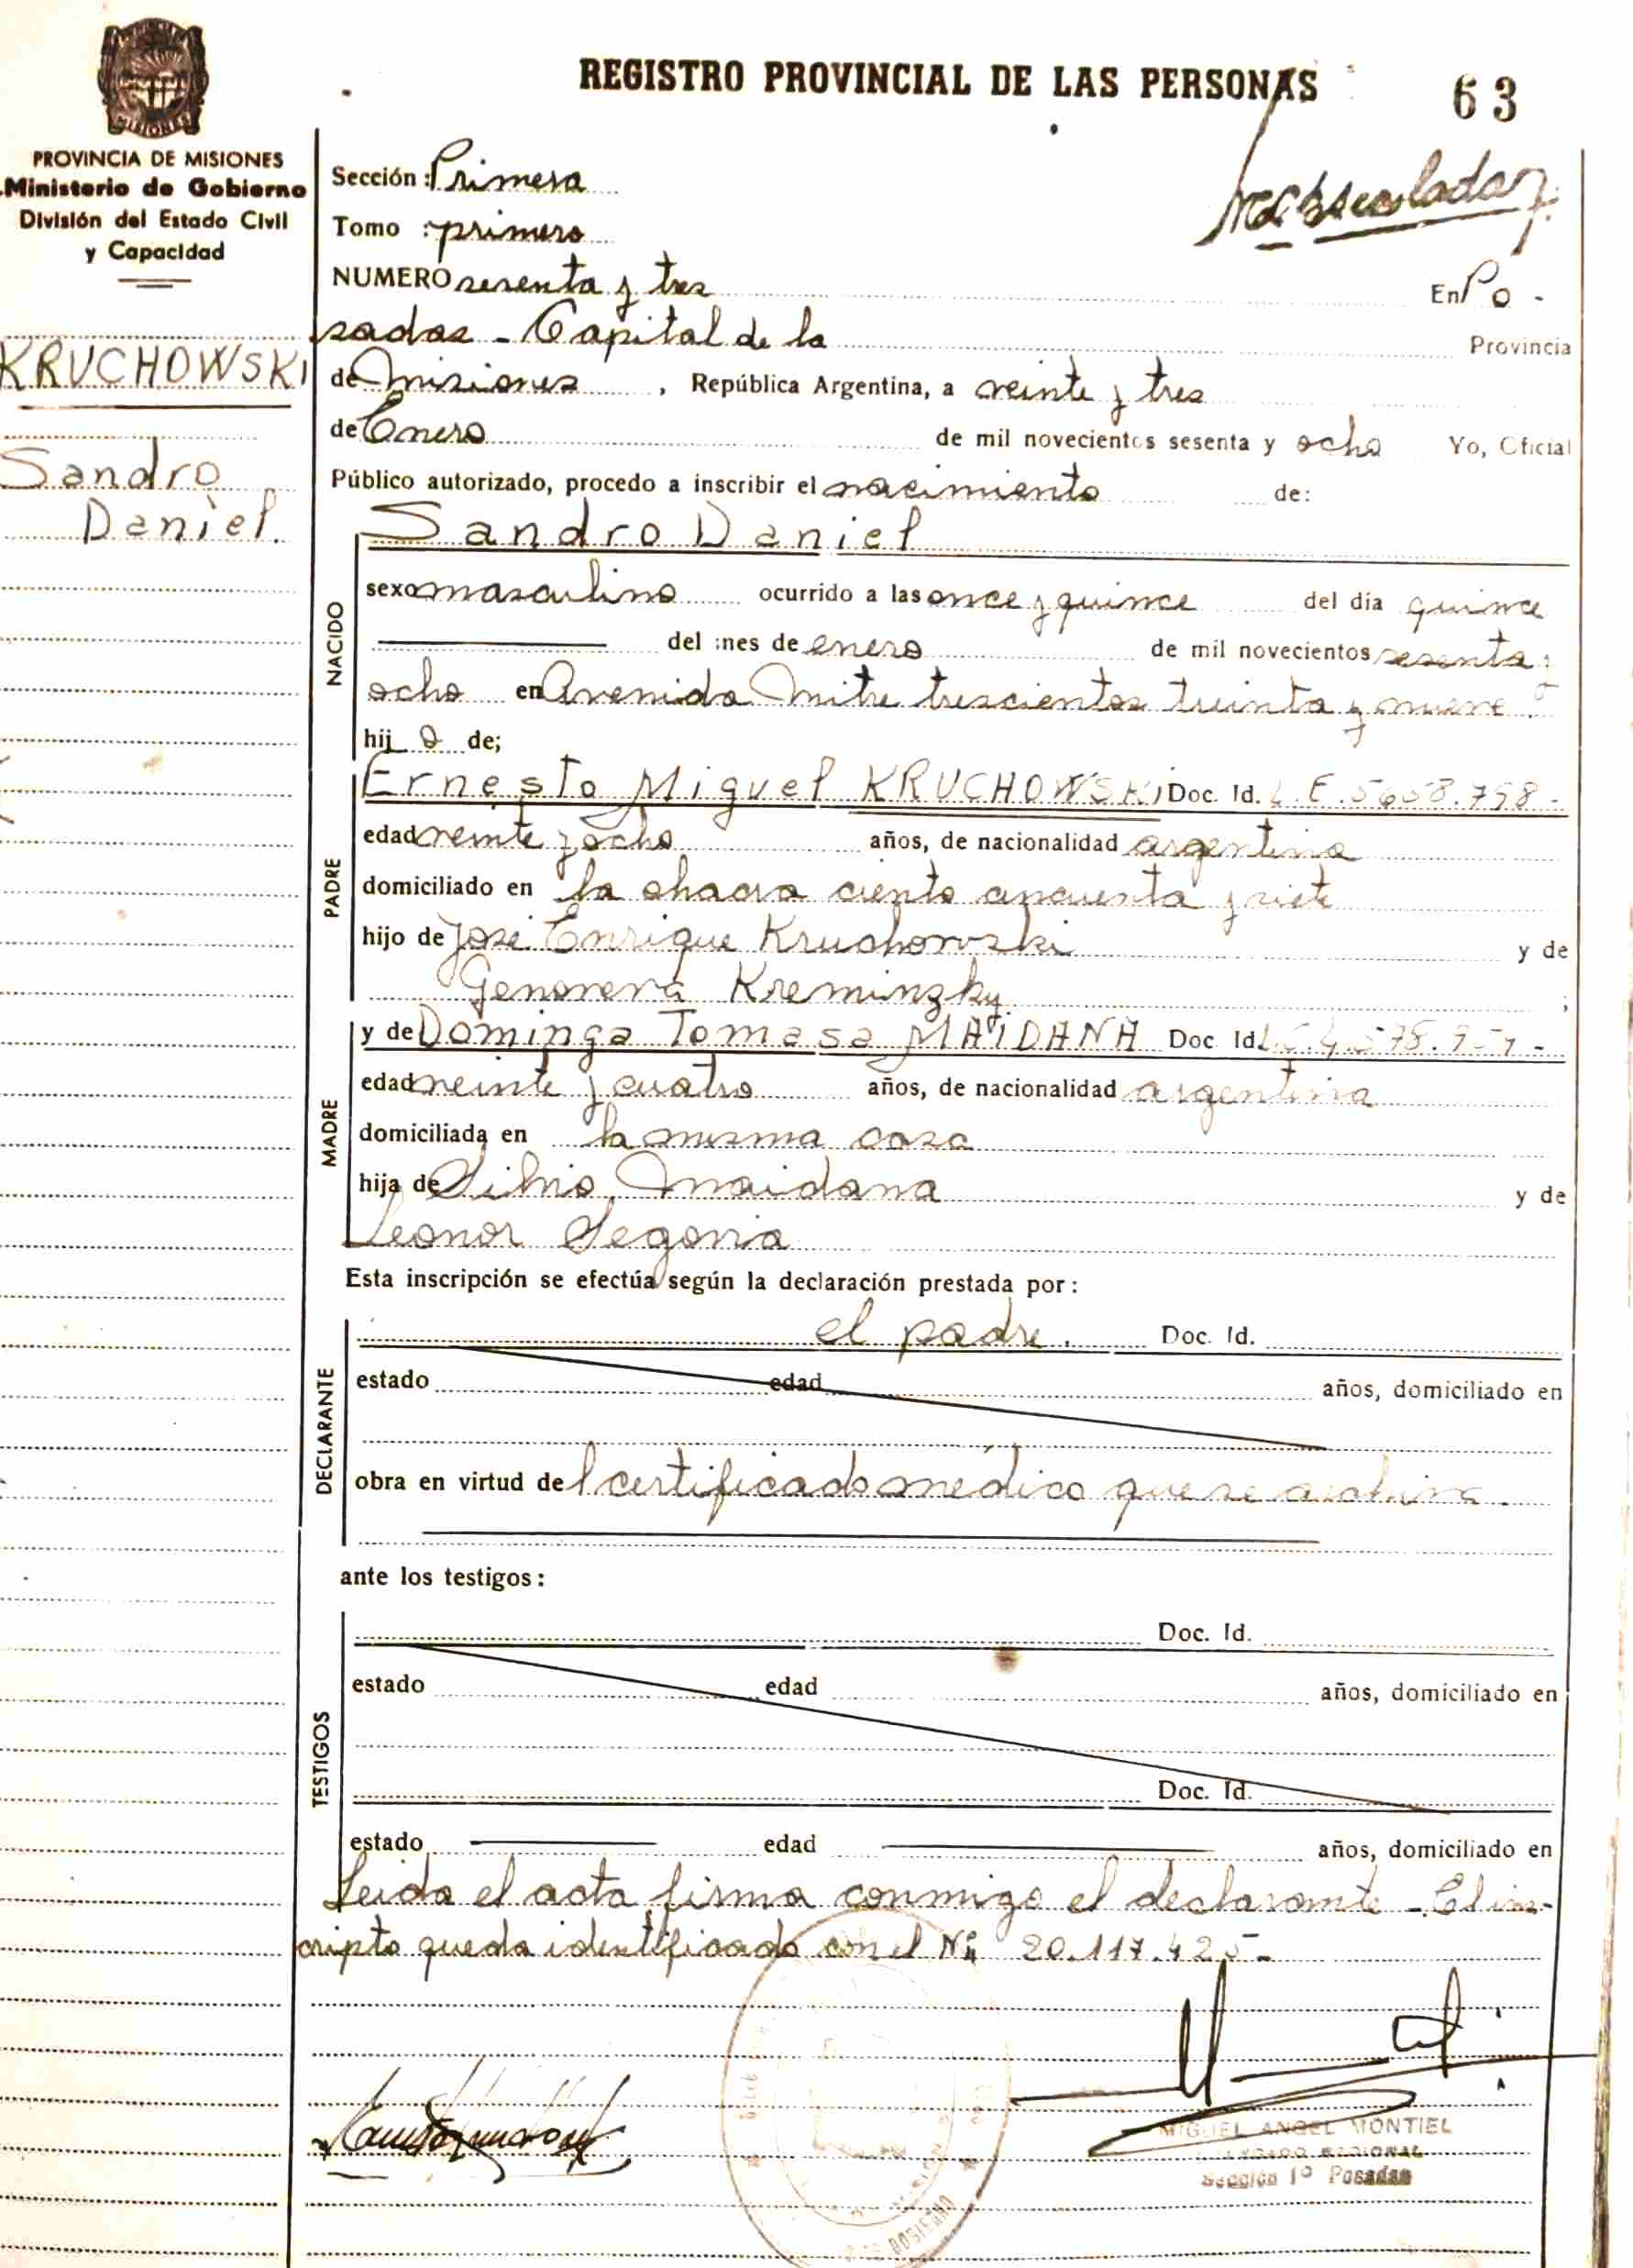 REGISTRO PROVINCIAL DE LAS PERSONAS
63
MISIONES
PROVINCIA DE MISIONES
Ministerio de Gobierno
División del Estado Civil
y Capacidad
KRUCHOWSKI
Sandro
Daniel.
Sección: Primera
Tomo: primero
NUMERO sesenta y tres En Po-
sadas - Capital de la Provincia
de Misiones, República Argentina, a veinte y tres
de Enero de mil novecientos sesenta y ocho Yo, Oficial
Público autorizado, procedo a inscribir el nacimiento de:
NACIDO
Sandro Daniel
sexo masculino ocurrido a las once y quince del día quince
del mes de enero de mil novecientos sesenta y
ocho en Avenida Mitre trescientos treinta y nueve
hijo de;
PADRE
Ernesto Miguel KRUCHOWSKI Doc. Id. L.E. 5658.758-
edad veinte y ocho años, de nacionalidad argentina
domiciliado en la chacra ciento cincuenta y siete
hijo de José Enrique Kruchowski y de
Genoveva Kreminzky ;
MADRE
y de Dominga Tomasa MAIDANA Doc. Id
edad veinte y cuatro años, de nacionalidad argentina
domiciliada en la misma casa
hija de Silvio Maidana y de
Leonor Segovia
Esta inscripción se efectúa según la declaración prestada por:
DECLARANTE
el padre. Doc. Id.
estado edad años, domiciliado en
obra en virtud del certificado médico que se archiva.
ante los testigos:
TESTIGOS
Doc. Id.
estado edad años, domiciliado en
Doc. Id.
estado edad años, domiciliado en
Leida el acta firma conmigo el declarante - El ins-
cripto queda identificado con el Nº 20.117.425-
MIGUEL ANGEL MONTIEL
REGIONAL
Sección 1º Posadas